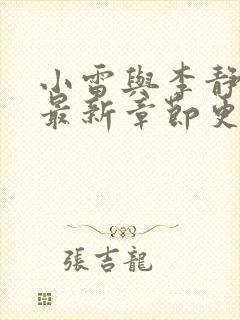 小雷與李靜
最新章節更
張吉龍